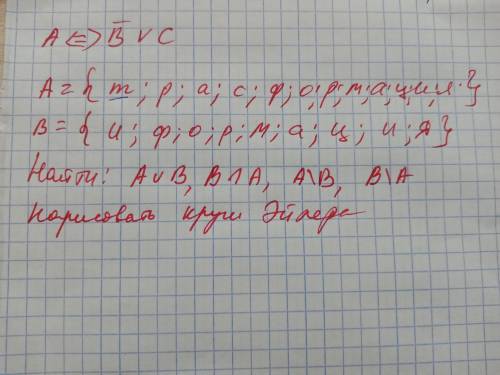 A <=> B̅ ∨ C
A = { т ; р ; а ; с ; ф ; о ; р ; м ; а ; ц ; и ; я . }
B = { и ; ф ; о ; р ; м ; а ; ц ; и ; я }
Найти: A ∪ B, B ∩ A, A \ B, B \ A
Нарисовать круги Эйлера